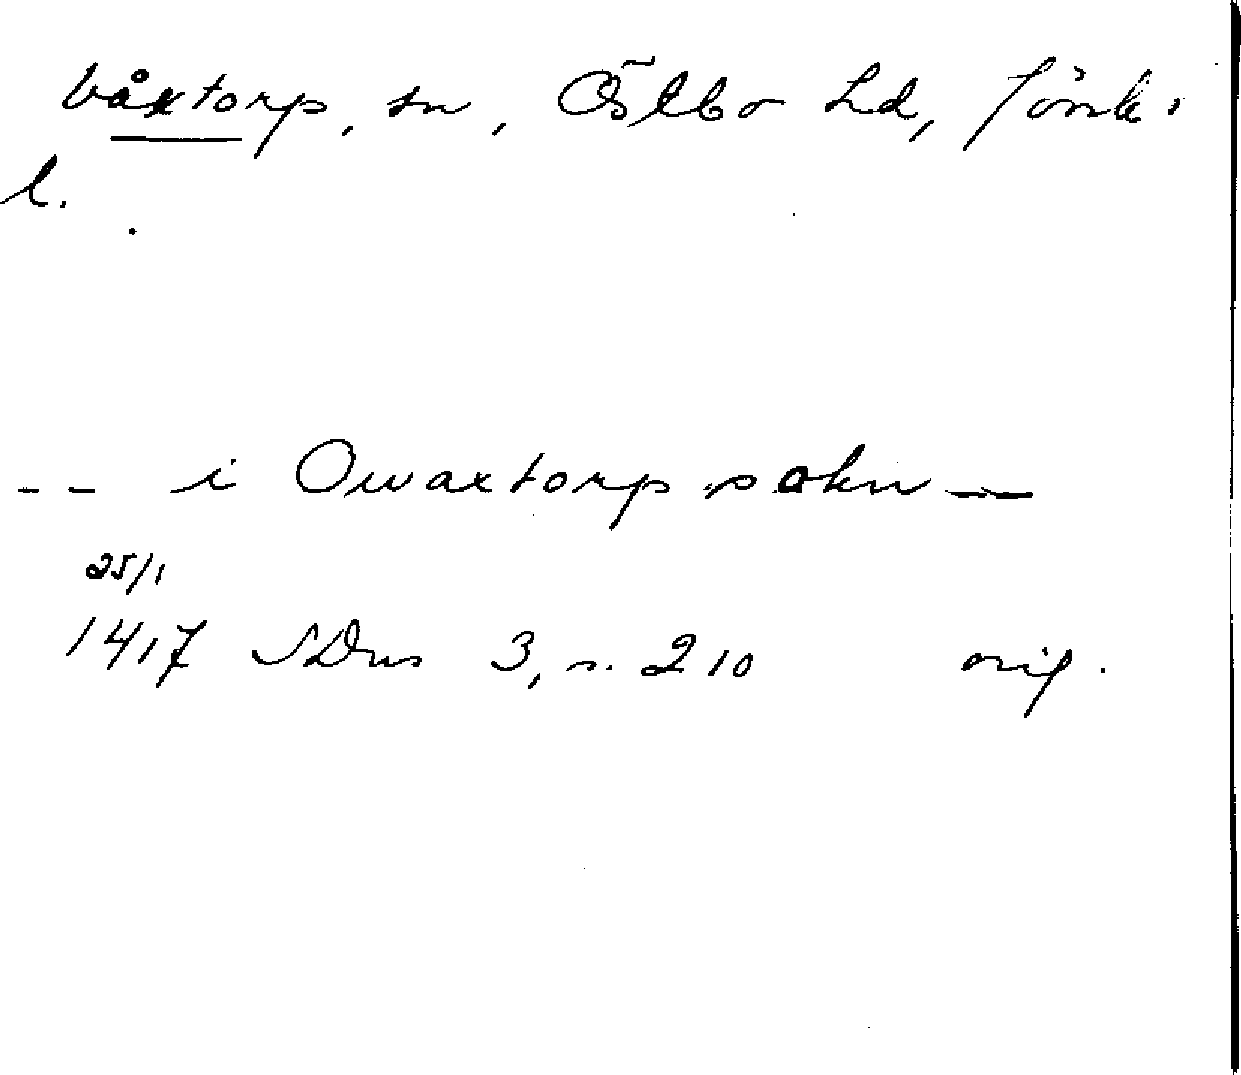 Våxtorp, sn, Östbo hd, Jönk.
l.
-- i Owaxtorp sokn --
25/1
1417 SDns 3, s. 210 orig.